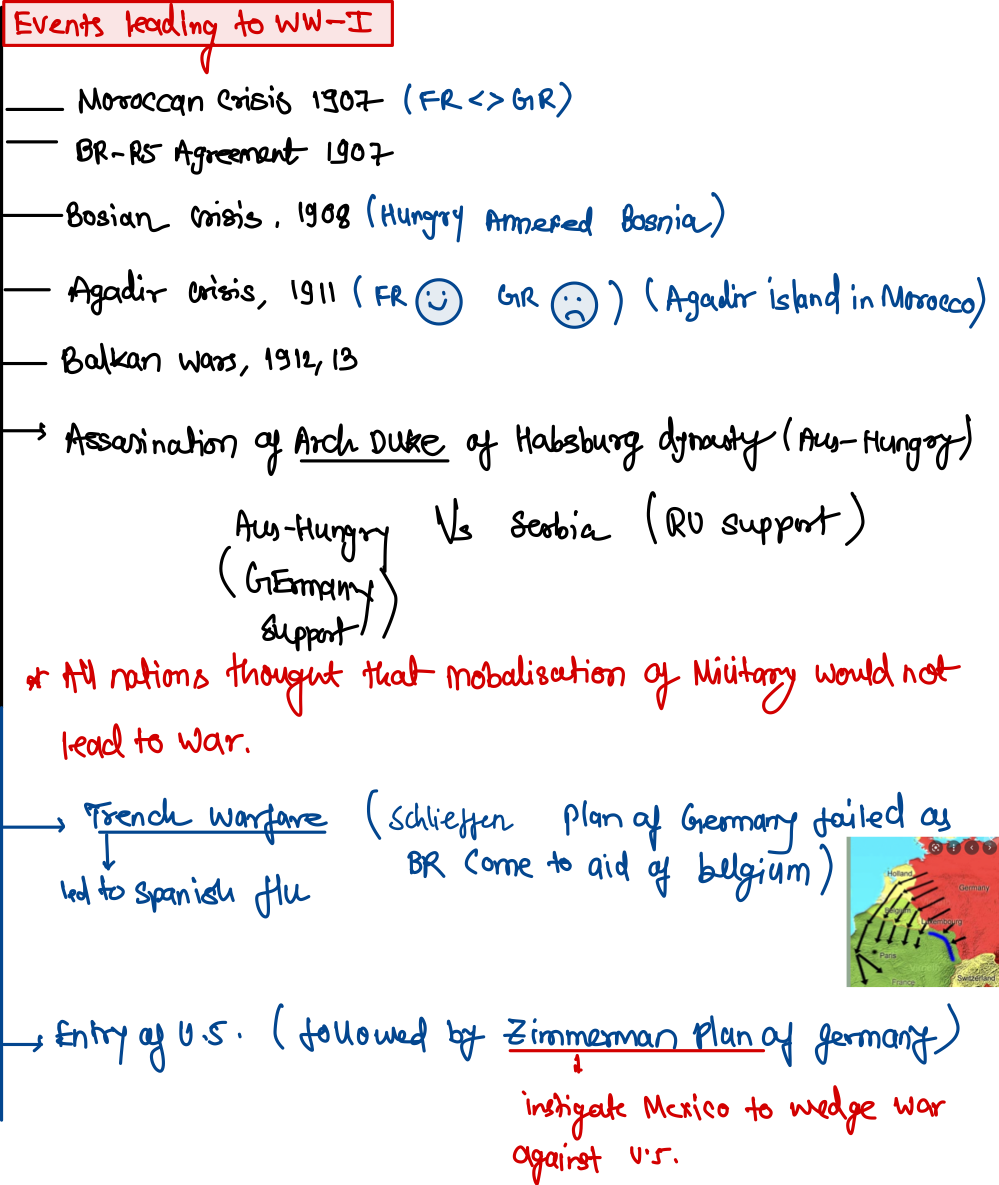 Events leading to WW-I
Moroccan Crisis 1907 (FR <> GR)
BR-RS Agreement 1907
Bosian crisis, 1908 (Hungry Annexed Bosnia)
Agadir crisis, 1911 (FR GR) (Agadir island in Morocco)
Balkan wars, 1912, 13
Assasination of Arch Duke of Habsburg dynasty (Aus-Hungry)
Aus-Hungry Vs Serbia (RU support)
(GErmany
support)
* All nations thought that mobalisation of Military would not
lead to war.
Trench warfare (Schlieffen plan of Germany failed as
BR Come to aid of belgium)
led to spanish flu
Holland
Germany
Belgium
Luxembourg
Paris
France
Switzerland
Entry of U.S. (followed by Zimmerman plan of germany)
instigate Mexico to wedge war
against U.S.